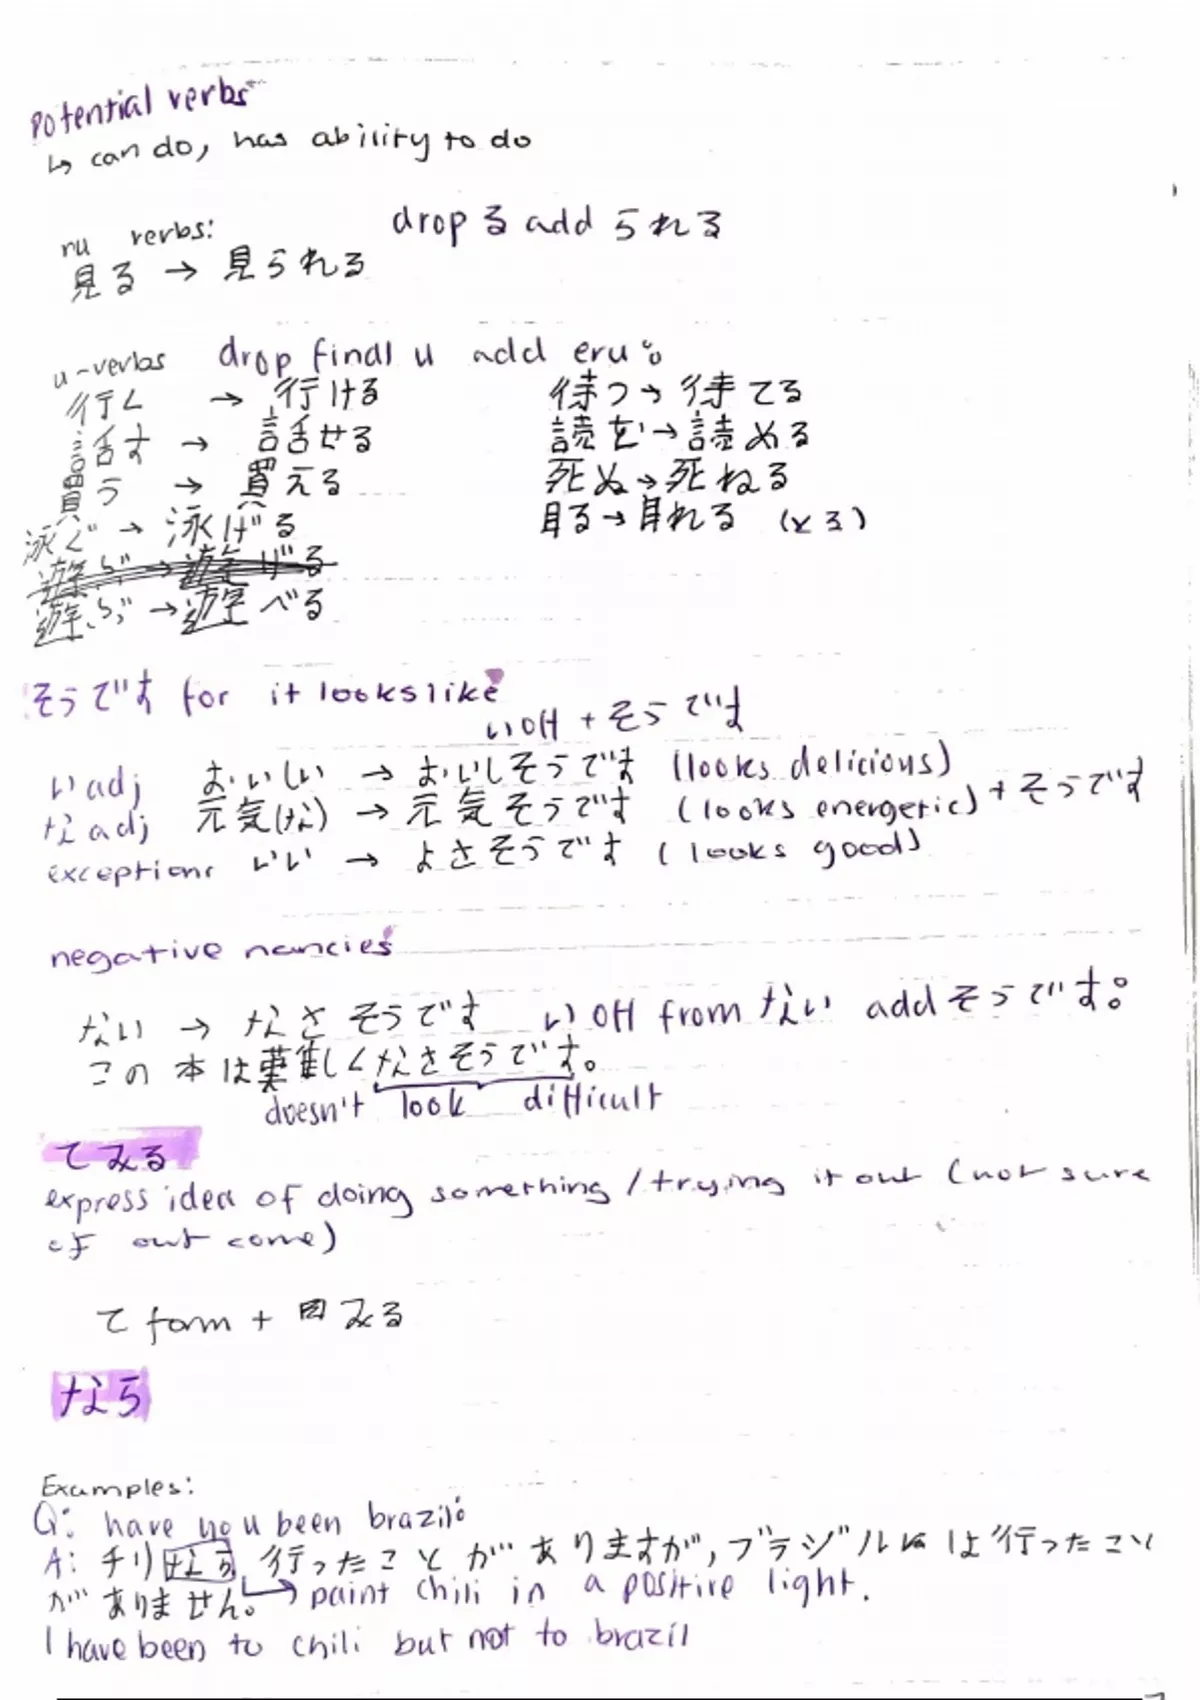 potential verbs
↳ can do, has ability to do
ru verbs: drop る add られる
見る → 見られる
u-verbs drop final u add eru
行く → 行ける 待つ → 待てる
話す → 話せる 読む → 読める
買う → 買える 死ぬ → 死ねる
泳ぐ → 泳げる 取る → 取れる (とる)
遊ぶ → 遊げる
遊ぶ → 遊べる
そうです for it looks like
い off + そうです
いadj おいしい → おいしそうです (looks delicious)
なadj 元気(な) → 元気そうです (looks energetic) + そうです
exceptions いい → よさそうです (looks good)
negative nancies
ない → なさそうです い off from ない add そうです。
この本は難しくなさそうです。
doesn't look difficult
てみる
express idea of doing something / trying it out (not sure
of out come)
て form + みる
なら
Examples:
Q: have you been brazil
A: チリなら行ったことがありますが, ブラジルには行ったこと
がありません。 → paint chili in a positive light.
I have been to chili but not to brazil